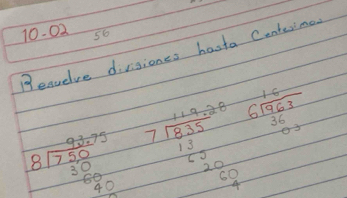 10-02 56
Resuelve divisiones hasta Centesimos
93.75 119.28 16
8 750 7 835 6 963
30 13 36
60 65 03
40 20
0 60
4